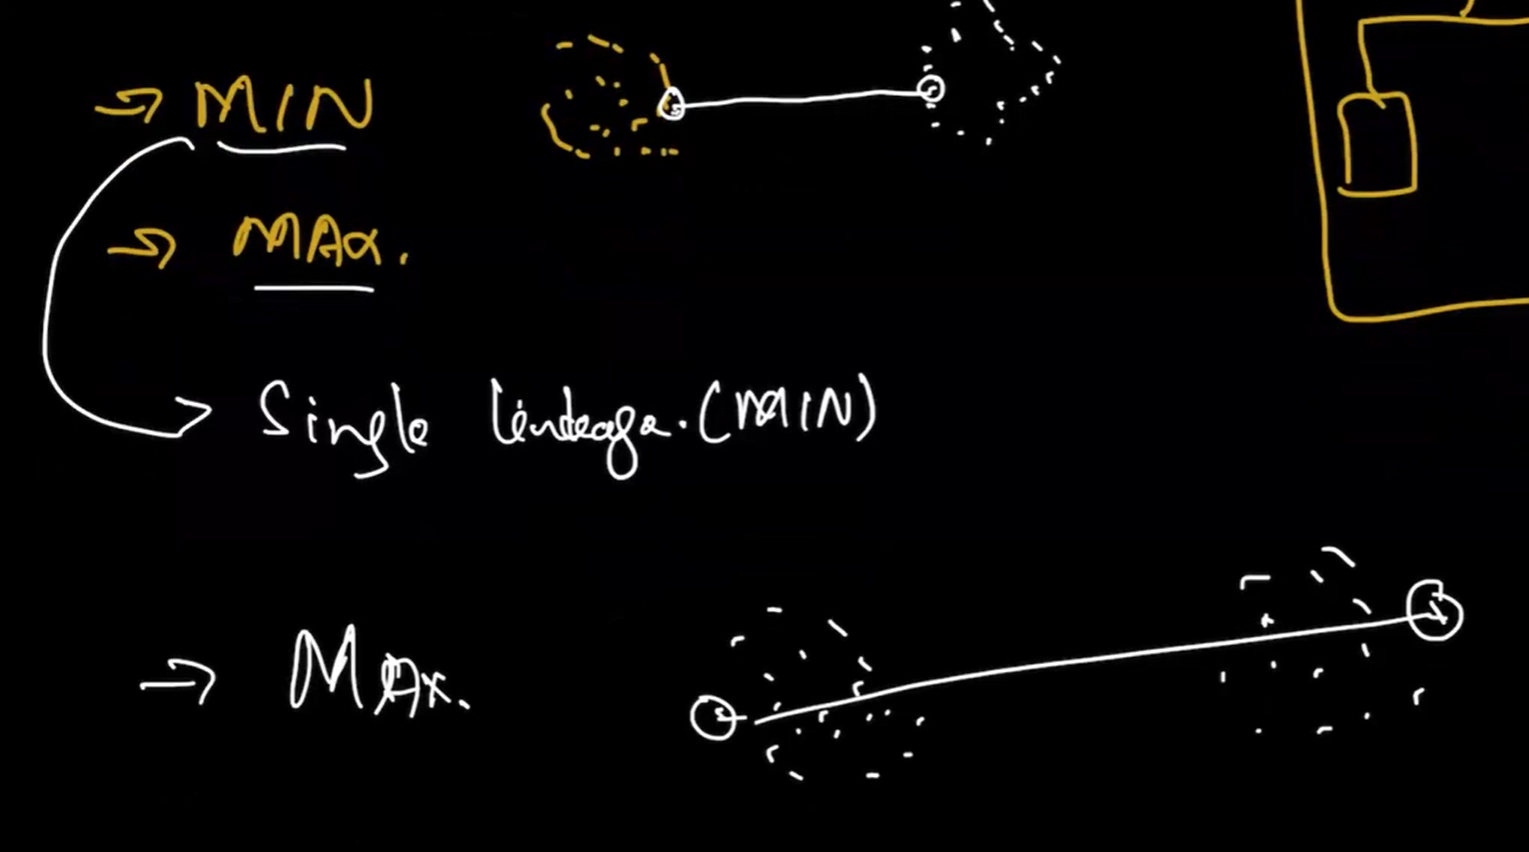 → MIN
→ MAX.
→ Single linkage. (MIN)
→ MAX.